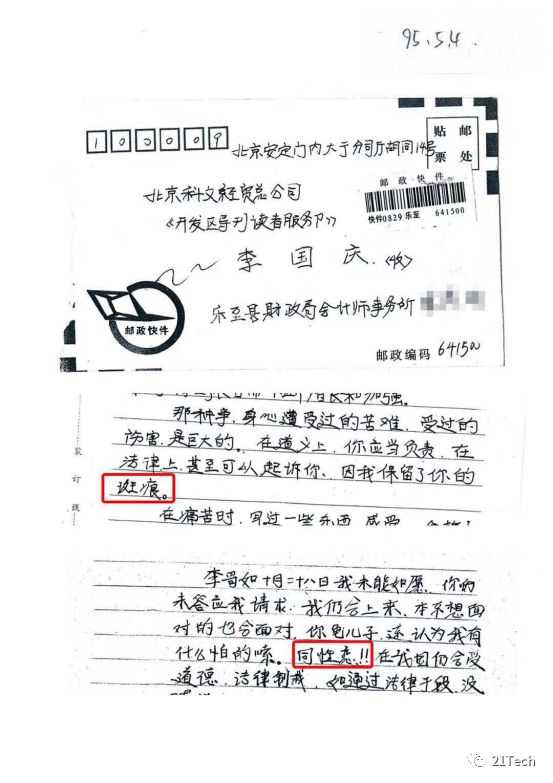 95.5.4
100009
贴邮
票处
北京安定门内大
分司厅胡同14号
邮政快件
北京科文经贸总公司
快件0829 乐至 641500
《开发区导刊读者服务部》
李国庆(收)
乐至县财政局会计师事务所
邮政快件
邮政编码 641500
那种事,身心遭受过的苦难,受过的
伤害,是巨大的。在道义上,你应当负责,在
法律上,甚至可以起诉你、因我保留了你的
斑痕。
在痛苦时,写过一些东西
装
订
线
李哥如十月二十八日我未能如愿,你们
未答应我请求,我们会上来,本不想面
对的也会面对,你龟儿子,还认为我有
什么怕的嗦。同性恋!!在我国仍会受
道德、法律制裁,如通过法律手段,没
21Tech